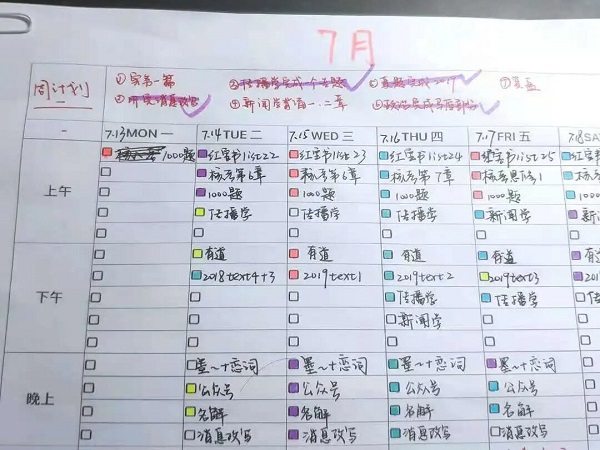 7月
周计划
一
①写第一篇 ③传播学完成一个专题 ⑤真题完成2017 ⑦复盘
②研究消息改写 ④新闻学背诵一.二章
一 7.13MON 一 7.14TUE 二 7.15WED 三 7.16THU 四 7.17FRI 五 7.18SA
上午
1000题 红宝书list22 红宝书list23 红宝书list24 红宝书list25 红宝书
核考第6章 核考第6章 核考第7章
1000题 1000题 1000题 1000题
传播学 传播学 传播学 新闻学
下午
有道 有道 有道 有道 有道
2018text4+3 2019text1 2019text2 2019text3
传播学 传播学
新闻学
晚上
墨~十恋词 墨~十恋词 墨~十恋词 墨~十恋词
公众号 公众号 公众号 公众号
名解 名解 名解 名解
消息改写 消息改写 消息改写 消息改写